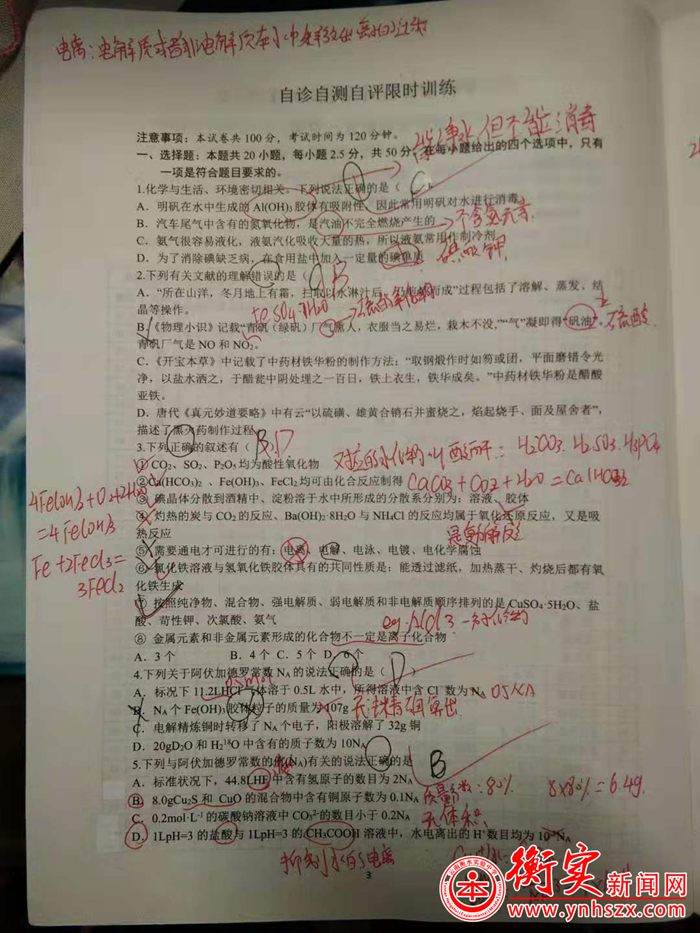 电离：电解质
自诊自测自评限时训练
净水 但不能消毒
注意事项：本试卷共100分，考试时间为120分钟。
一、选择题：本题共20小题，每小题2.5分，共50分。在每小题给出的四个选项中，只有
一项是符合题目要求的。
1.化学与生活、环境密切相关。下列说法正确的是（ ）
C
A．明矾在水中生成的Al(OH)₃胶体有吸附性，因此常用明矾对水进行消毒
B．汽车尾气中含有的氮氧化物，是汽油不完全燃烧产生的
C．氨气很容易液化，液氨汽化吸收大量的热，所以液氨常用作制冷剂
D．为了消除碘缺乏病，在食用盐中加入一定量的碘单质
2.下列有关文献的理解错误的是（ ）
B
A．“所在山洋，冬月地上有霜，扫取以水淋汁后，乃煎炼而成”过程包括了溶解、蒸发、结
晶等操作。
B．《物理小识》记载“青矾（绿矾）厂气熏人，衣服当之易烂，栽木不没，”“气”凝即得“矾油”
硫酸
青矾厂气是NO和NO₂。
C．《开宝本草》中记载了中药材铁华粉的制作方法：“取钢煅作叶如笏或团，平面磨错令光
净，以盐水洒之，于醋瓮中阴处埋之一百日，铁上衣生，铁华成矣。”中药材铁华粉是醋酸
亚铁。
D．唐代《真元妙道要略》中有云“以硫磺、雄黄合硝石并蜜烧之，焰起烧手、面及屋舍者”，
描述了黑火药制作过程
3.下列正确的叙述有（ ）
B D
①CO₂、SO₂、P₂O₅均为酸性氧化物
②Ca(HCO₃)₂、Fe(OH)₃、FeCl₂均可由化合反应制得
CaCO₃+CO₂+H₂O=Ca(HCO₃)₂
③碘晶体分散到酒精中、淀粉溶于水中所形成的分散系分别为：溶液、胶体
④灼热的炭与CO₂的反应、Ba(OH)₂·8H₂O与NH₄Cl的反应均属于氧化还原反应，又是吸
热反应
=4Fe(OH)₃
Fe+2FeCl₃=
3FeCl₂
⑤需要通电才可进行的有：电离、电解、电泳、电镀、电化学腐蚀
⑥氯化铁溶液与氢氧化铁胶体具有的共同性质是：能透过滤纸，加热蒸干、灼烧后都有氧
化铁生成
⑦按照纯净物、混合物、强电解质、弱电解质和非电解质顺序排列的是CuSO₄·5H₂O、盐
酸、苛性钾、次氯酸、氨气
⑧金属元素和非金属元素形成的化合物不一定是离子化合物
A．3个 B．4个 C．5个 D．6个
4.下列关于阿伏加德罗常数NA的说法正确的是（ ）
D
0.5mol
A．标况下11.2LHCl气体溶于0.5L水中，所得溶液中含Cl⁻数为NA
0.5NA
B．NA个Fe(OH)₃胶体粒子的质量为107g
C．电解精炼铜时转移了NA个电子，阳极溶解了32g铜
D．20gD₂O和H₂¹⁸O中含有的质子数为10NA
5.下列与阿伏加德罗常数的值(NA)有关的说法正确的是
B
A．标准状况下，44.8LHF中含有氢原子的数目为2NA
B．8.0gCu₂S和CuO的混合物中含有铜原子数为0.1NA
8×80%=6.4g
C．0.2mol·L⁻¹的碳酸钠溶液中CO₃²⁻的数目小于0.2NA
无体积
D．1LpH=3的盐酸与1LpH=3的CH₃COOH溶液中，水电离出的H⁺数目均为10⁻³NA
抑制水的电离
3
衡实新闻网
www.ynhszx.com